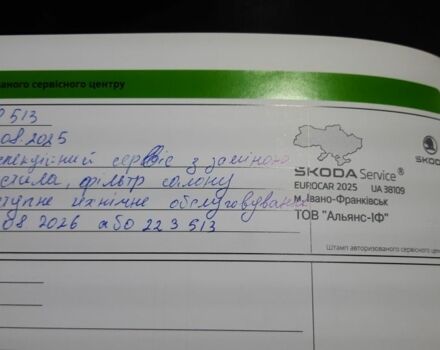 ваного сервісного центру
513
.08.2025
сервіс з заміною
стила, фільтр салону
ступне технічне обслуговування
.08 2026 або 223 513
ŠKODA Service®
EUROCAR 2025 UA 38109
м. Івано-Франківськ
ТОВ "Альянс-ІФ"
ŠKODA
Штамп авторизованого сервісного це